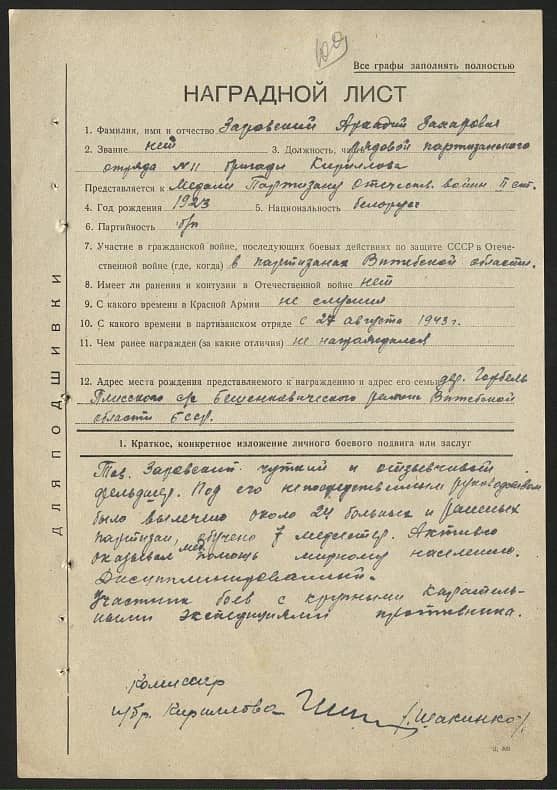 100
Все графы заполнять полностью
НАГРАДНОЙ ЛИСТ
1. Фамилия, имя и отчество Заровский Аркадий Захарович
2. Звание нет 3. Должность, часть рядовой партизанского
отряда №11 бригады Кириллова
Представляется к Медали Партизану Отечеств. войны II ст.
4. Год рождения 1923 5. Национальность белорус
6. Партийность б/п
7. Участие в гражданской войне, последующих боевых действиях по защите СССР в Отече-
ственной войне (где, когда) в партизанах Витебской области.
8. Имеет ли ранения и контузии в Отечественной войне нет
9. С какого времени в Красной Армии не служил
10. С какого времени в партизанском отряде с 27 августа 1943 г.
11. Чем ранее награжден (за какие отличия) не награждался
12. Адрес места рождения представляемого к награждению и адрес его семьи дер. Горбель
Плисского с/с Бешенковичского района Витебской
области БССР.
1. Краткое, конкретное изложение личного боевого подвига или заслуг
Тов. Заровский чуткий и отзывчивый
фельдшер. Под его непосредственным руководством
было вылечено около 24 больных и раненых
партизан, обучено 7 медсестер. Активно
оказывал мед. помощь мирному населению.
Дисциплинированный.
Участник боев с крупными каратель-
ными экспедициями противника.
Комиссар
п/бр. Кириллова /Шакинко/.
ДЛЯ ПОДШИВКИ